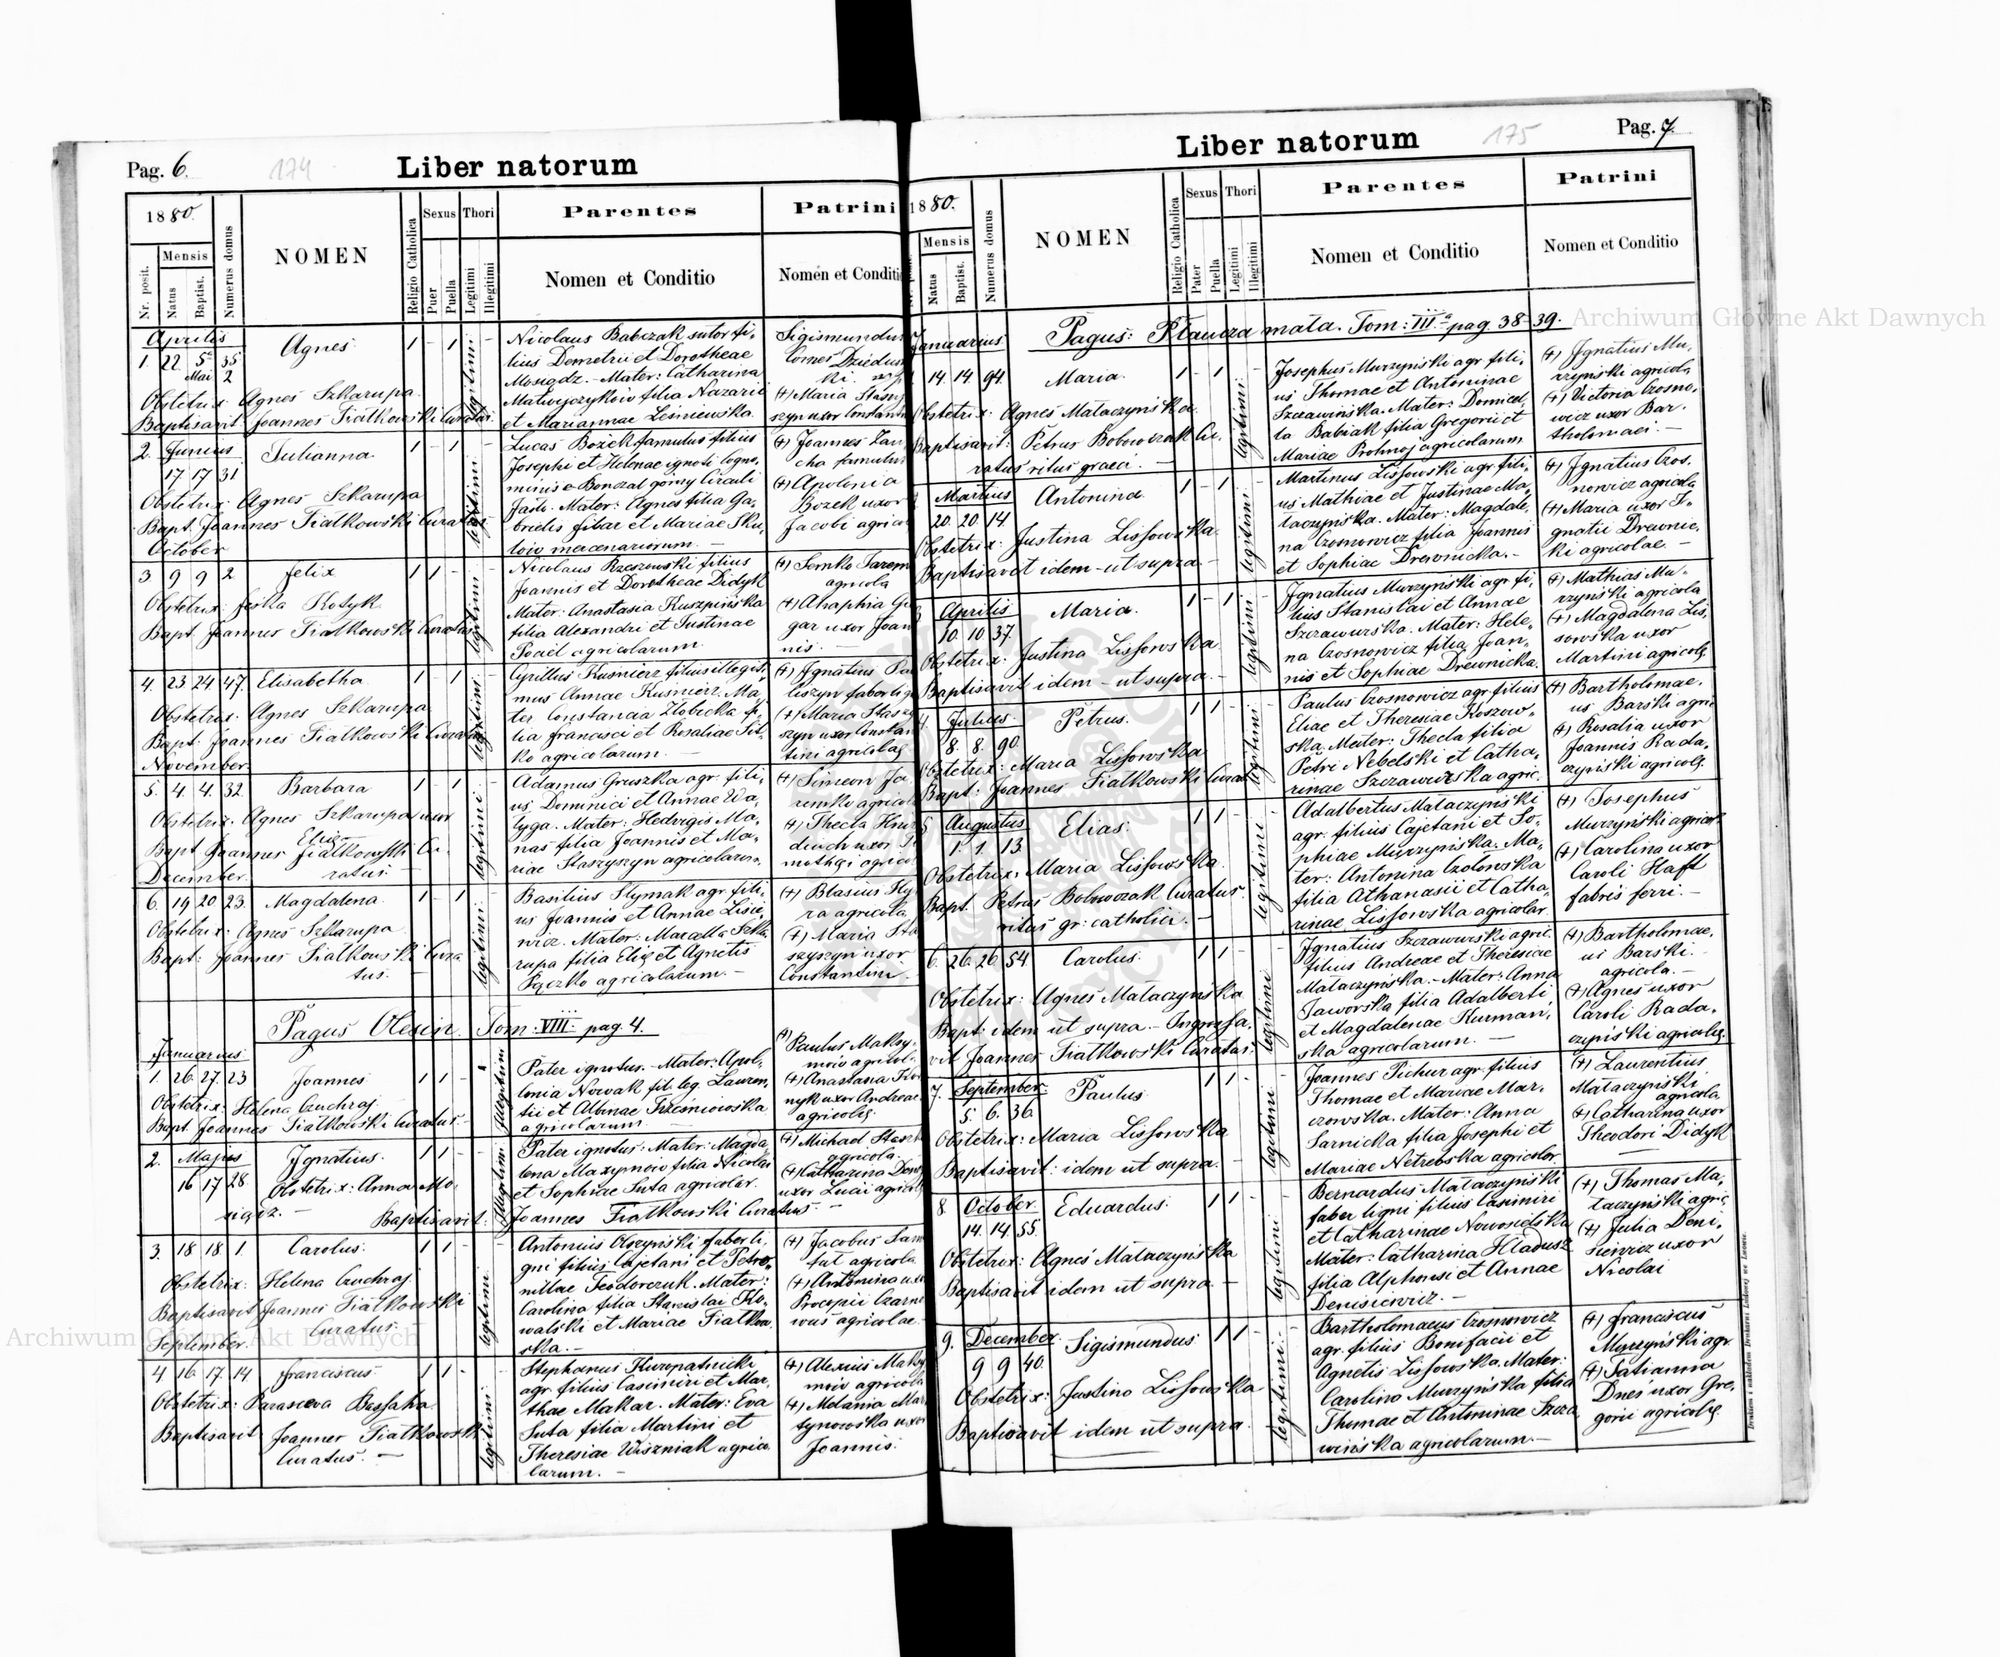 Pag. 6.
174
Liber natorum
1880.
Nr. posit.
Mensis
Natus
Baptist.
Numerus domus
NOMEN
Religio Catholica
Sexus
Puer
Puella
Thori
Legitimi
Illegitimi
Parentes
Nomen et Conditio
Patrini
Nomen et Conditi
Aprilis
1. 22. 5. Mai 35 2
Agnes
1 - 1 -
legitimi
Obstetrix Agnes Szkarupa
Baptisavit Joannes Fiałkowski Curatus
Nicolaus Babczak sutor fi-
lius Demetrii et Dorotheae
Mosiądz. - Mater: Catharina
Matwijczyków filia Nazarii
et Mariannae Leśniewska.
Sigismundus
Comes Dzieduszy
ki
(+) Maria Stasy
szyn uxor Constantin
2. Junius
17 17 31
Julianna
1 - 1 -
legitimi
Obstetrix: Agnes Szkarupa
Bapt. Joannes Fiałkowski Curatus
Lucas Bożek famulus filius
Josephi et Helenae ignoti cogno-
minis e Bonczal górny Circuli
Jasło. Mater: Agnes filia Ga-
brielis
mercenariorum. -
(+) Joannes Zan
cha famulus
(+) Apolonia
Bożek uxor
Jacobi agrico
October
3 9 9 2
Felix
1 1 - -
legitimi
Obstetrix: Feśka Kostyk
Bapt Joannes Fiałkowski Curatus
Nicolaus Rzeszowski filius
Joannis et Dorotheae Didyk
Mater: Anastasia Kuszpińska
filia Alexandri et Justinae
agricolarum
(+) Semko Jarem
agricola
(+) Ahaphia
gar uxor Joan
nis. -
4. 23 24 47.
Elisabetha
1 - 1 -
legitimi
Obstetrix: Agnes Szkarupa
Bapt. Joannes Fiałkowski Curatus
Cyrillus Kusnierz filius illegiti-
mus Annae Kusnierz. Ma-
ter Constancia Złobicka fi-
lia Francisci et Rosaliae Sit-
ko agricolarum. -
(+) Ignatius Pa
liszyn faber lig
(+) Maria Stasy
szyn uxor Constan
tini agricolae
November
5. 4. 4. 32.
Barbara
1 - 1 -
legitimi
Obstetrix: Agnes Szkarupa uxor
Eliae
Bapt Joannes Fiałkowski Cu-
ratus. -
Adamus Gruszka agr. fili-
us Dominici et Annae Wa-
lyga. Mater: Hedvigis Ma-
nas filia Joannis et Ma-
riae Staszyszyn agricolarum.
(+) Simeon Ja
remko agricola
(+) Thecla
uxor
agrico
December
6. 19 20 23.
Magdalena
1 - 1
legitimi
Obstetrix: Agnes Szkarupa
Bapt: Joannes Fiałkowski Cura
tus. -
Basilius Stymak agr. fili-
us Joannis et Annae Lisie-
wicz. Mater: Marcella Szka-
rupa filia Eliae et Agnetis
Pączko agricolarum. -
(+) Blasius
ra agricola
(+) Maria Sta
szyszyn uxor
Constantini. -
Pagus Olesin. Tom: VIII. pag. 4.
Januarius
1. 26. 27. 23
Joannes
1 1 -
illegitimi
Obstetrix: Helena Czuchraj
Bapt. Joannes Fiałkowski Curatus. -
Pater ignotus. - Mater: Apol-
lonia Nowak fil. leg. Lauren-
tii et Albinae Trześniowska
agricolarum. -
(+) Paulus Maksy-
mów agricol-
(+) Anastasia
nyk uxor Andreae
agricolae.
2. Majus
16 17 28.
Ignatius.
1 1 -
illegitimi
Obstetrix: Anna Mo-
siądz. - Baptisavit: Joannes Fiałkowski Curatus. -
Pater ignotus: Mater: Magda
lena Maxymów filia Nicolai
et Sophiae Suta agricolar.
(+) Michael
agricola.
(+) Catharina
uxor Lucae agricol
3. 18. 18. 1.
Carolus.
1 1 -
legitimi
Obstetrix: Helena Czuchraj
Baptisavit Joannes Fiałkowski
Curatus.
Antonius Olszyński faber li-
gni filius Cajetani et Petro-
nillae Teodorczuk. Mater:
Carolina filia Stanislai Ko-
walski et Mariae Fiałkow-
ska. -
(+) Jacobus
fat agricola
(+) Antonina uxo
Procopii Czarne
agricolae
September.
4 16. 17. 14
Franciscus
1 1 -
legitimi
Obstetrix: Parasceva Bassaha
Baptisavit Joannes Fiałkowski
Curatus. -
Stephanus Kuropatnicki
agr. filius Casimiri et Mar-
thae Makar. Mater: Eva
Suta filia Martini et
Theresiae Wiszniak agrico-
larum. -
(+) Alexius Maksy
mów agricola
(+) Melania Mar
tynowska uxor
Joannis.
Pag. 7.
175
Liber natorum
1880.
Mensis
Natus
Baptist.
Numerus domus
NOMEN
Religio Catholica
Sexus
Pater
Puella
Thori
Legitimi
Illegitimi
Parentes
Nomen et Conditio
Patrini
Nomen et Conditio
Pagus: Płaucza mała. Tom: III. pag. 38-39.
Januarius
14. 14. 94.
Maria
1 - 1 -
legitimi
Obstetrix: Agnes Małaczyńska
Baptisavit: Petrus Bobowczak Cu-
ratus ritus graeci. -
Josephus Murzyński agr. fili-
us Thomae et Antoninae
Szczawińska. Mater: Domicel-
la Babiak filia Gregorii et
Mariae Prohnoj agricolarum
(+) Ignatius Mu-
rzyński agricola
(+) Victoria Czosno-
wicz uxor Bar-
tholomaei. -
Martius
20. 20. 14.
Antonina
1 - 1 -
legitimi
Obstetrix: Justina Lissowska.
Baptisavit idem - ut supra. -
Martinus Lissowski agr. fili-
us Mathiae et Justinae Ma-
łaczyńska. Mater: Magdale-
na Czosnowicz filia Joannis
et Sophiae Drewnicka. -
(+) Ignatius Czos-
nowicz agricola
(+) Maria uxor I-
gnatii Drewnic-
ki agricolae. -
3 Aprilis
10. 10. 37.
Maria.
1 - 1 -
legitimi
Obstetrix: Justina Lissowska
Baptisavit idem - ut supra. -
Ignatius Murzyński agr. fi-
lius Stanislai et Annae
Szczawurska. Mater: Hele-
na Czosnowicz filia Joan-
nis et Sophiae Drewnicka.
(+) Mathias Mu-
rzyński agricola
(+) Magdalena Lis-
sowska uxor
Martini agricolae
4. Julius
8. 8. 90.
Petrus.
1 1 -
legitimi
Obstetrix: Maria Lissowska
Bapt: Joannes Fiałkowski Curat
Paulus Czosnowicz agr. filius
Eliae et Theresiae Koszow-
ska. Mater: Thecla filia
Petri Nebelski et Catha-
rinae Szczawurska agric.
(+) Bartholomae-
us Barski agric
(+) Rosalia uxor
Joannis Rada-
czyński agricolae.
5 Augustus
1. 1. 13.
Elias.
1 1 -
legitimi
Obstetrix: Maria Lissowska.
Bapt. Petrus Bobowczak Curatus
ritus gr: catholici. -
Adalbertus Małaczyński
agr. filius Cajetani et So-
phiae Murzyńska. Ma-
ter: Antonina Czołowska
filia Athanasii et Catha-
rinae Lissowska agricolar.
(+) Josephus
Murzyński agricol
(+) Carolina uxor
Caroli Hafft
fabris ferri. -
6. 26. 26. 54
Carolus.
1 1 -
legitimi
Obstetrix: Agnes Małaczyńska
Bapt: idem ut supra. - Ingrossa-
vit Joannes Fiałkowski Curatus.
Ignatius Szczawurski agric.
filius Andreae et Theresiae
Małaczyńska. - Mater: Anna
Jaworska filia Adalberti
et Magdalenae Kurman-
ska agricolarum. -
(+) Bartholomae-
us Barski.
agricola. -
(+) Agnes uxor
Caroli Rada-
czyński agricolae.
7. September
5. 6. 36.
Paulus
1 1 -
legitimi
Obstetrix: Maria Lissowska
Baptisavit: idem ut supra. -
Joannes Pichur agr. filius
Thomae et Mariae Mar-
czowska. Mater: Anna
Sarnicka filia Josephi et
Mariae Netrebska agricolar.
(+) Laurentius
Małaczyński
agricola
(+) Catharina uxor
Theodori Didyk
8. October
14. 14. 55.
Eduardus.
1 1 -
legitimi
Obstetrix: Agnes Małaczyńska
Baptisavit idem ut supra. -
Bernardus Małaczyński
faber ligni filius Casimiri
et Catharinae Nowosielska
Mater: Catharina Hladusz
filia Alphonsi et Annae
Denisiewicz. -
(+) Thomas Ma-
łaczyński agric.
(+) Julia Deni-
siewicz uxor
Nicolai
9. December
9 9 40.
Sigismundus
1 1 -
legitimi
Obstetrix: Justina Lissowska
Baptisavit idem ut supra.
Bartholomaeus Czosnowicz
agr. filius Bonifacii et
Agnetis Lissowska. Mater:
Carolina Murzyńska filia
Thomae et Antoninae Szcza
wińska agricolarum. -
(+) Franciscus
Murzyński agr.
(+) Tatianna
Dnes uxor Gre-
gorii agricolae.
Drukiem i nakładem Drukarni Ludowej we Lwowie.
Archiwum Główne Akt Dawnych
Archiwum Główne Akt Dawnych